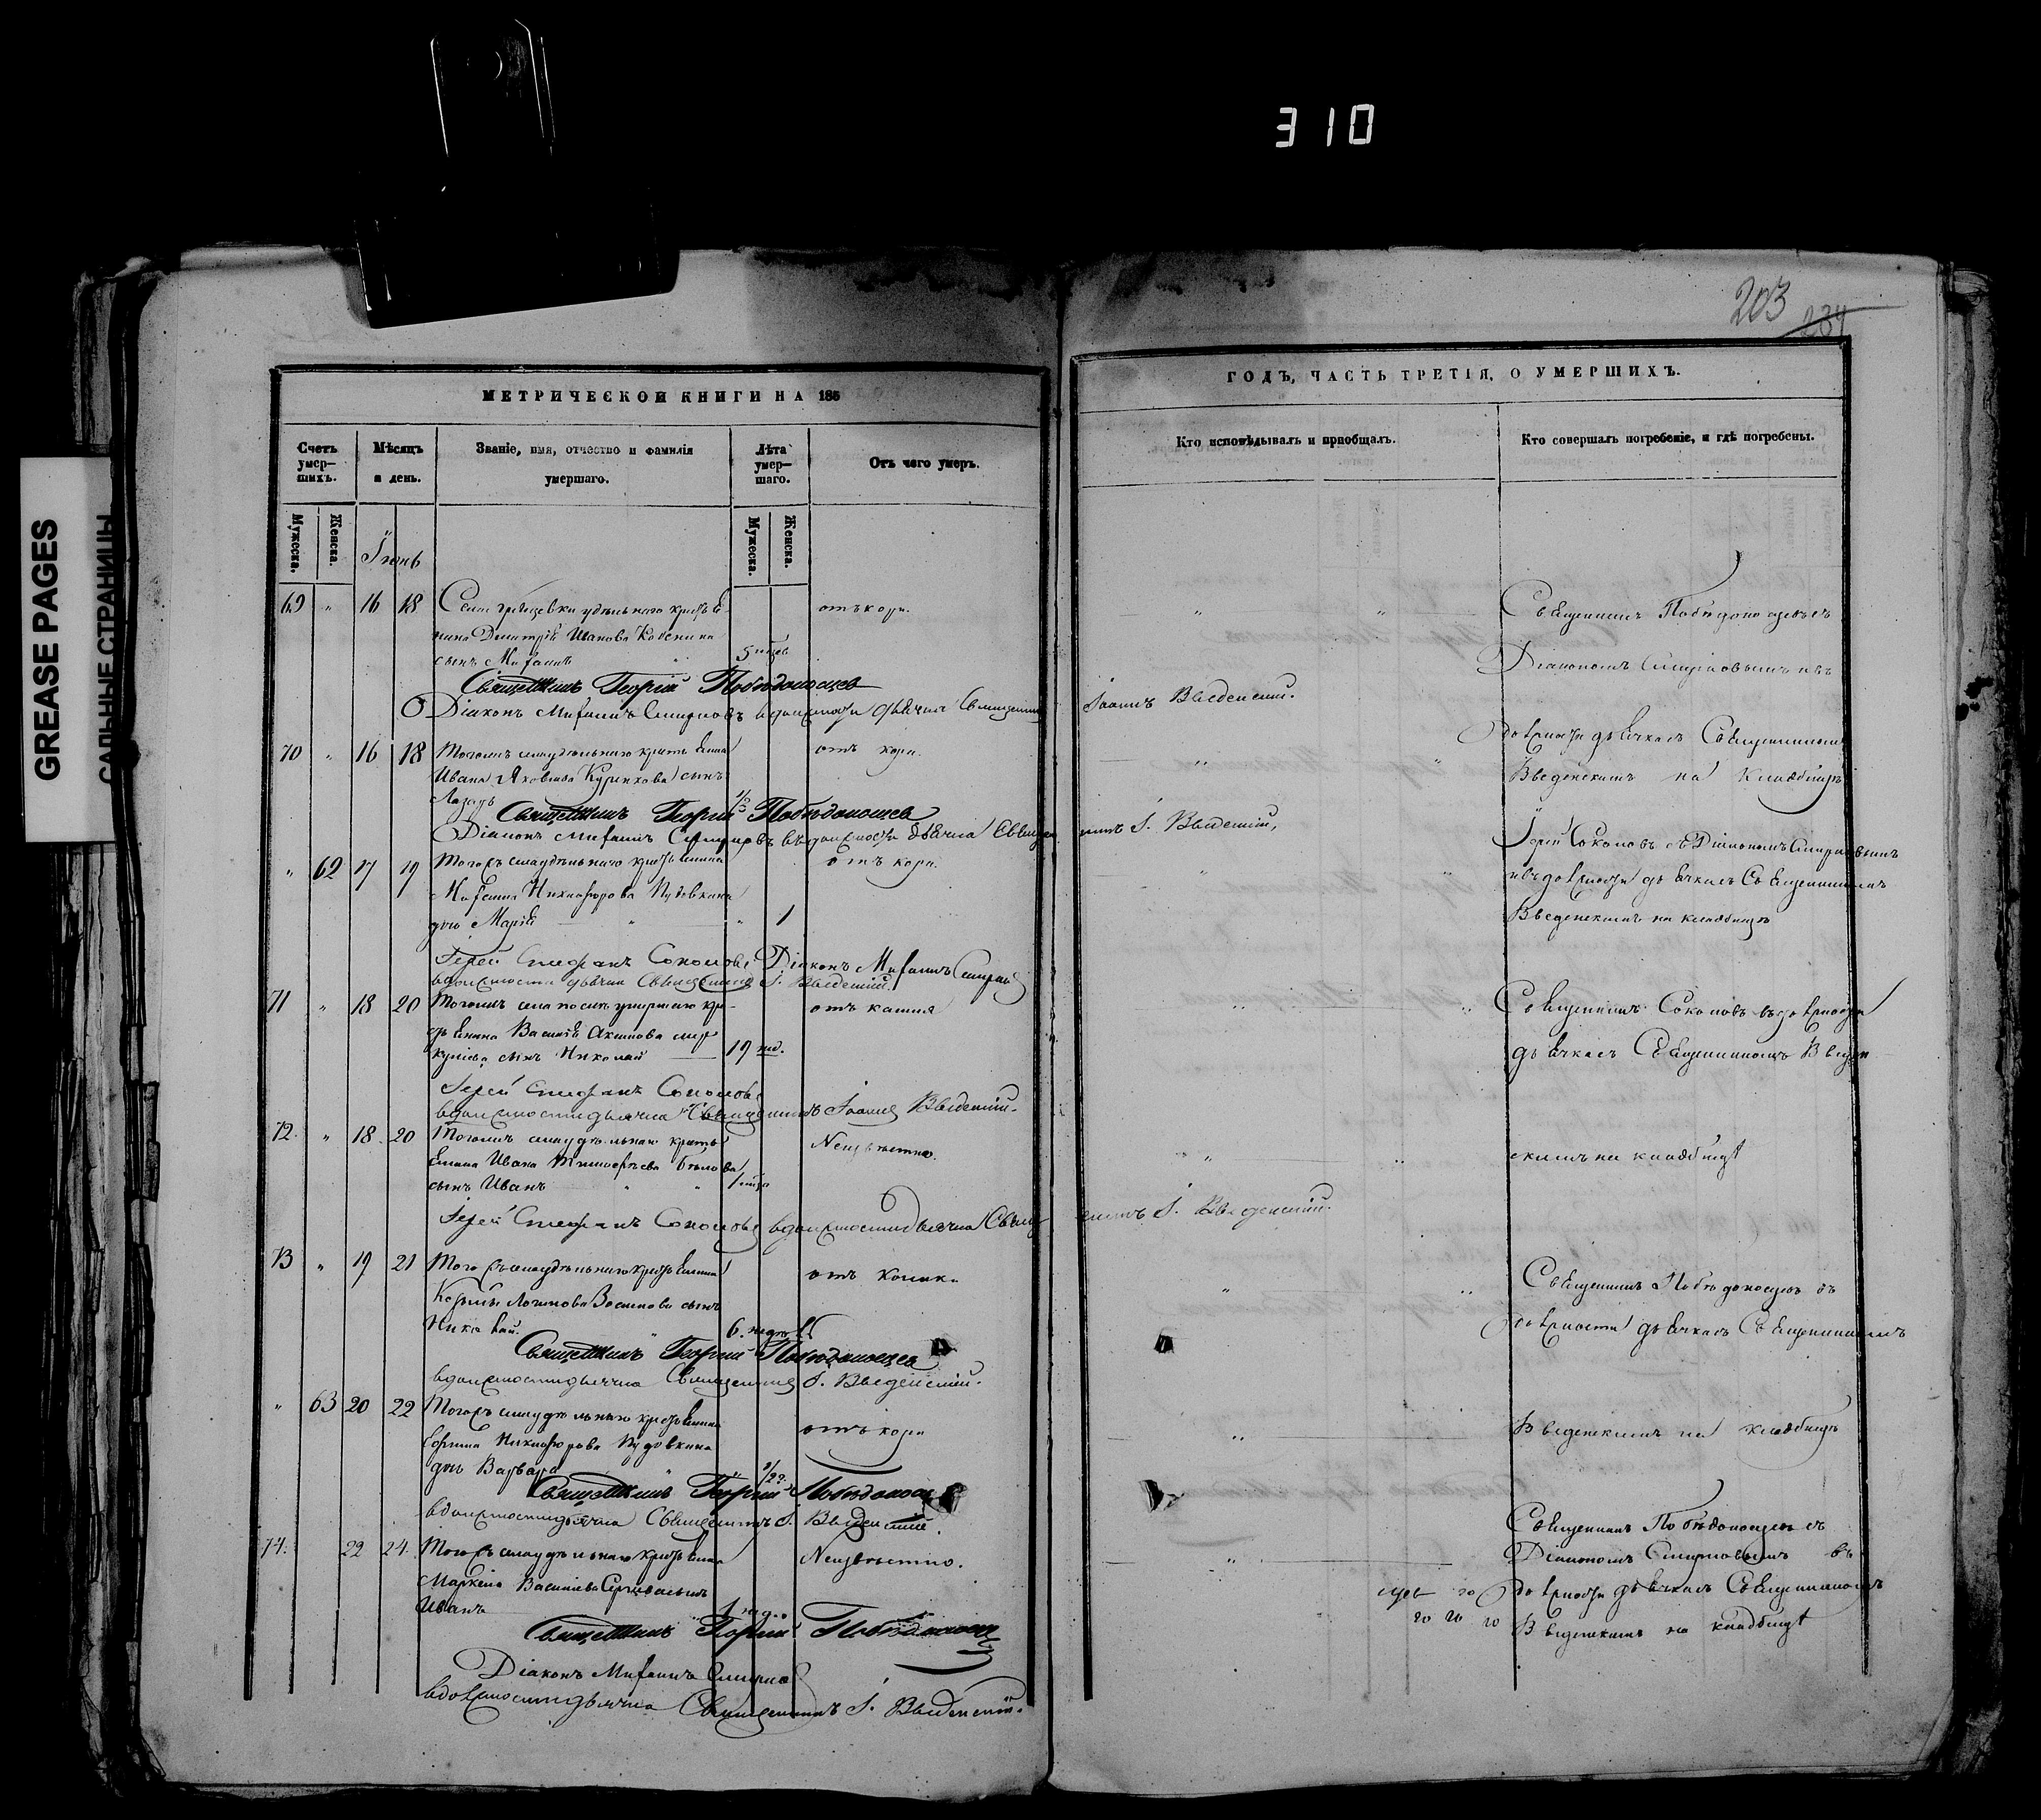 310
GREASE PAGES
САЛЬНЫЕ СТРАНИЦЫ
203
234
МЕТРИЧЕСКОЙ КНИГИ НА 185
Счетъ умер-шихъ.
Мѣсяцъ и день.
Званіе, имя, отчество и фамилія умершаго.
Лѣта умер-шаго.
Отъ чего умеръ.
Мужеска.
Женска.
Мужеска.
Женска.
Іюнь
69 " 16 18 Села удѣльнаго крестья-
отъ кори.
нина Димитрія Иванова
сынъ Михаилъ 5 мцев
Священникъ Георгій Побѣдоносцевъ
Діаконъ Михаилъ Смирновъ въ должности дьячка Священникъ Іоаннъ Введенскій.
70 " 16 18 Тогожъ села удѣльнаго крестьянина
отъ кори.
Ивана Яковлева сынъ
Лазарь
Священникъ Георгій Побѣдоносцевъ
Діаконъ Михаилъ Смирновъ въ должности дьячка Священникъ І. Введенскій,
" 62 17 19 Тогожъ села удѣльнаго крестьянина
отъ кори.
Никифорова Пудовкина
дочь Марія " " 1
Іерей Стефанъ Соколовъ Діаконъ Михаилъ Смирновъ
въ должности дьячка Священникъ І. Введенскій.
71 " 18 20 Тогожъ села кре-
отъ кашля
стьянина Василія Акимова
сынъ Николай 19 нед.
Іерей Стефанъ Соколовъ
въ должности дьячка Священникъ Іоаннъ Введенскій.
72. " 18. 20 Тогожъ села удѣльнаго кресть
Неизвѣстно.
янина Ивана Тимофеева Бѣлова
сынъ Иванъ " " 1 мцъ
Іерей Стефанъ Соколовъ въ должности дьячка Священникъ І. Введенскій.
73 " 19 21 Тогожъ села удѣльнаго крестьянина
Козьмы Логинова сынъ
Николай. 6. недѣль
Священникъ Георгій Побѣдоносцевъ
въ должности дьячка Священникъ І. Введенскій.
" 63 20 22 Тогожъ села удѣльнаго крестьянина
отъ кори
Никифорова Пудовкина
дочь Варвара
Священникъ Георгій Побѣдоносцевъ
въ должности дьячка Священникъ І. Введенскій.
74. 22 24. Тогожъ села удѣльнаго крестьянина
Неизвѣстно.
Васильева сынъ
Иванъ 1 нед.
Священникъ Георгій Побѣдоносцевъ
Діаконъ Михаилъ Смирновъ
въ должности дьячка Священникъ І. Введенскій.
ГОДЪ, ЧАСТЬ ТРЕТІЯ, О УМЕРШИХЪ.
Кто исповѣдывалъ и пріобщалъ.
Кто совершалъ погребеніе, и гдѣ погребены.
Священникъ Побѣдоносцевъ съ
Діакономъ Смирновымъ и въ
должности дьячка Священникомъ
Введенскимъ на кладбищѣ
Іерей Соколовъ съ Діакономъ Смирновымъ
и въ должности дьячка Священникомъ
Введенскимъ на кладбищѣ
Священникъ Соколовъ въ должности
дьячка Священникомъ Введен
скимъ на кладбищѣ
Священникъ Побѣдоносцевъ въ
должности дьячка Священникомъ
Введенскимъ на кладбищѣ
Священникъ Побѣдоносцевъ съ
Діакономъ Смирновымъ въ
должности дьячка Священникомъ
Введенскимъ на кладбищѣ